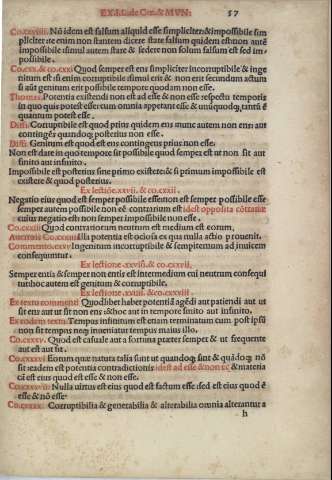 EX.I.li.de Coe.& MVN: 57
Co.cxviiii. Nō idem est falsum aliquid esse simpliciter:& impossibile sim
pliciter:ut enim non stantem dicere stare falsum quidem est:non autē
impossibile :simul autem stare & sedere non solum falsum est sed im-
possibile.
Co.cxx.& co.cxxi Quod semper est ens simpliciter incorruptibile & inge
nitum est :si enim corruptibile simul erit & non erit secundum actum
si aūt genitum erit possibile tempore quodam non esse.
Thomas. Potentia existendi non est ad esse & non esse respectu temporis
in quo quis potest esse:cum omnia appetant esse & unūquodq̄ tantū ē
quantum potest esse.
Diffi: Corruptibile est quod prius quidem ens nunc autem non ens: aut
contingēs quandoq̄ posterius non esse.
Diffi: Genitum est quod est ens contingens prius non esse.
Non est dare in quo tempore sit possibile quod semper est ut non sit aut
finito aut infinito.
Impossibile est posterius sine primo existere:& si primum impossibile est
existere & quod posterius.
Ex lectione.xxvii. & co.cxxii.
Negatio eius quod est semper possibile esse:non est semper possibile esse
semper autem possibile non eē contrarium est idest opposita cōtrarie
cuius negatio est non semper impossibile non esse.
Co.cxxiii Quod contrariorum neutrum est medium est eorum,
Auerrois Co.cxxiiii Illa potentia est ociosa ex qua nulla actio prouenit.
Commento.cxxv Ingenitum incorruptibile & sempiternum ad inuicem
consequuntur.
Ex lectione.xxviii. & co.cxxvii.
Semper entis & semper non entis est intermedium cui neutrum consequi
tur:hoc autem est genitum & corruptibile.
Ex lectione.xxix. & co.cxxxiii
Ex textu commenti Quodlibet habet potentiā agēdi aut patiendi aut ut
sit ens aut ut sit non ens :& hoc aut in tempore finito aut infinito.
Ex eodem textu: Tempus infinitum est etiam terminatum cum post ipsū
non sit tempus neq̄ inueniatur tempus maius illo.
Co.cxxxv. Quod est casuale aut a fortuna præter semper & ut frequente
aut est aut fit.
Co.cxxxvi Eorum quæ natura talia sunt ut quandoq̄ sint & quādoq̄ nō
sit :eadem est potentia contradictionis idest ad esse & non eē & materia
cā est eius quod est esse & non esse.
Co.cxxxvii: Nulla uirtus est eius quod est factum esse :sed est eius quod ē
esse & nō esse
Co.cxxxx. Corruptibilia & generabilia & alterabilia omnia alterantur a
h